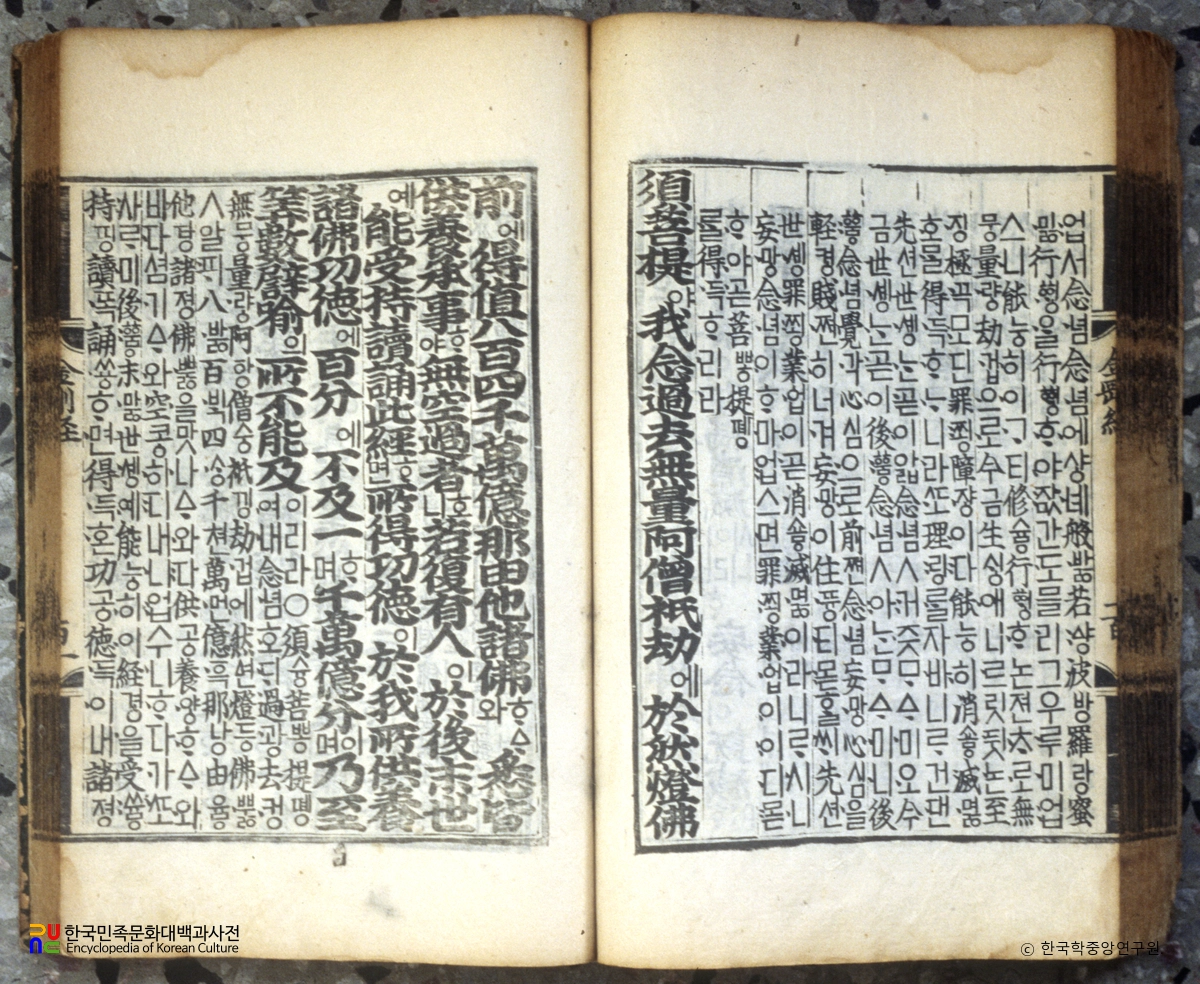 업서念념念념에샹녜般밣若샹波방羅랑蜜
밇行ᅘᆡᆼ을行ᅘᆡᆼᄒᆞ야잢간도믈리그우루미업
스니能능히이ᄀᆞ티修슣行ᅘᆡᆼᄒᆞ논젼ᄎᆞ로無
뭉量량劫겁으로수금生ᄉᆡᆼ애니르릿ᄃᆞᆺ논至
징極끅모딘罪쬥障쟝이다能능히消숗滅멿
호ᄆᆞᆯ得득ᄒᆞᄂᆞ니라ᄯᅩ理링ᄅᆞᆯ자바니ᄅᆞ건댄
先션世솅ᄂᆞᆫ곧이앒念념ㅅ거즛ᄆᆞᅀᆞ미오今
금世솅ᄂᆞᆫ곧이後ᅘᅮᇢ念념ㅅ아논ᄆᆞᅀᆞ미니後
ᅘᅮᇢ念념覺각心심으로前쪈念념妄망心심을
輕켱賤쪈히너겨妄망이住뜡티몯ᄒᆞᆯᄊᆡ先션
世솅罪쬥業업이곧消숗滅멿이라니ᄅᆞ시니
妄망念념이ᄒᆞ마업스면罪쬥業업이이디몯
ᄒᆞ야곧菩뽕提뗑
ᄅᆞᆯ得득ᄒᆞ리라
須菩提야我念過去無量阿僧祇劫에於然燈佛
金剛經
前에得值八百四千萬億那由他諸佛ᄒᆞᅀᆞ와悉皆
供養承事ᄒᆞ야無空過者ᄒᆞ니若復有人이於後末世
예能受持讀誦此經ᄒᆞ면所得功德이於我所供養
諸佛功德에百分에不及一ᄒᆞ며千萬億分이며乃至
筭數譬喻인所不能及이리라○須슝菩뽕提뗑
여내念념호ᄃᆡ過광去컹
無뭉量량阿항僧승祇낑劫겁에然ᅀᅧᆫ燈등佛뿛
ㅅ알ᄑᆡ八밣百ᄇᆡᆨ四ᄉᆞᆼ千쳔萬먼億흑那낭由윻
他탕諸졍佛뿛을맛나ᅀᆞ와다供공養양ᄒᆞᅀᆞ와
바다셤기ᅀᆞ와空콩히디내니업수니ᄒᆞ다가ᄯᅩ
사ᄅᆞ미後ᅘᅮᇢ末맗世솅예能능히이経경을受쓩
持띵讀똑誦쑝ᄒᆞ면得득혼功공德득이내諸졍
金剛経
한국민족문화대백과사전
Encyclopedia of Korean Culture
ⓒ 한국학중앙연구원